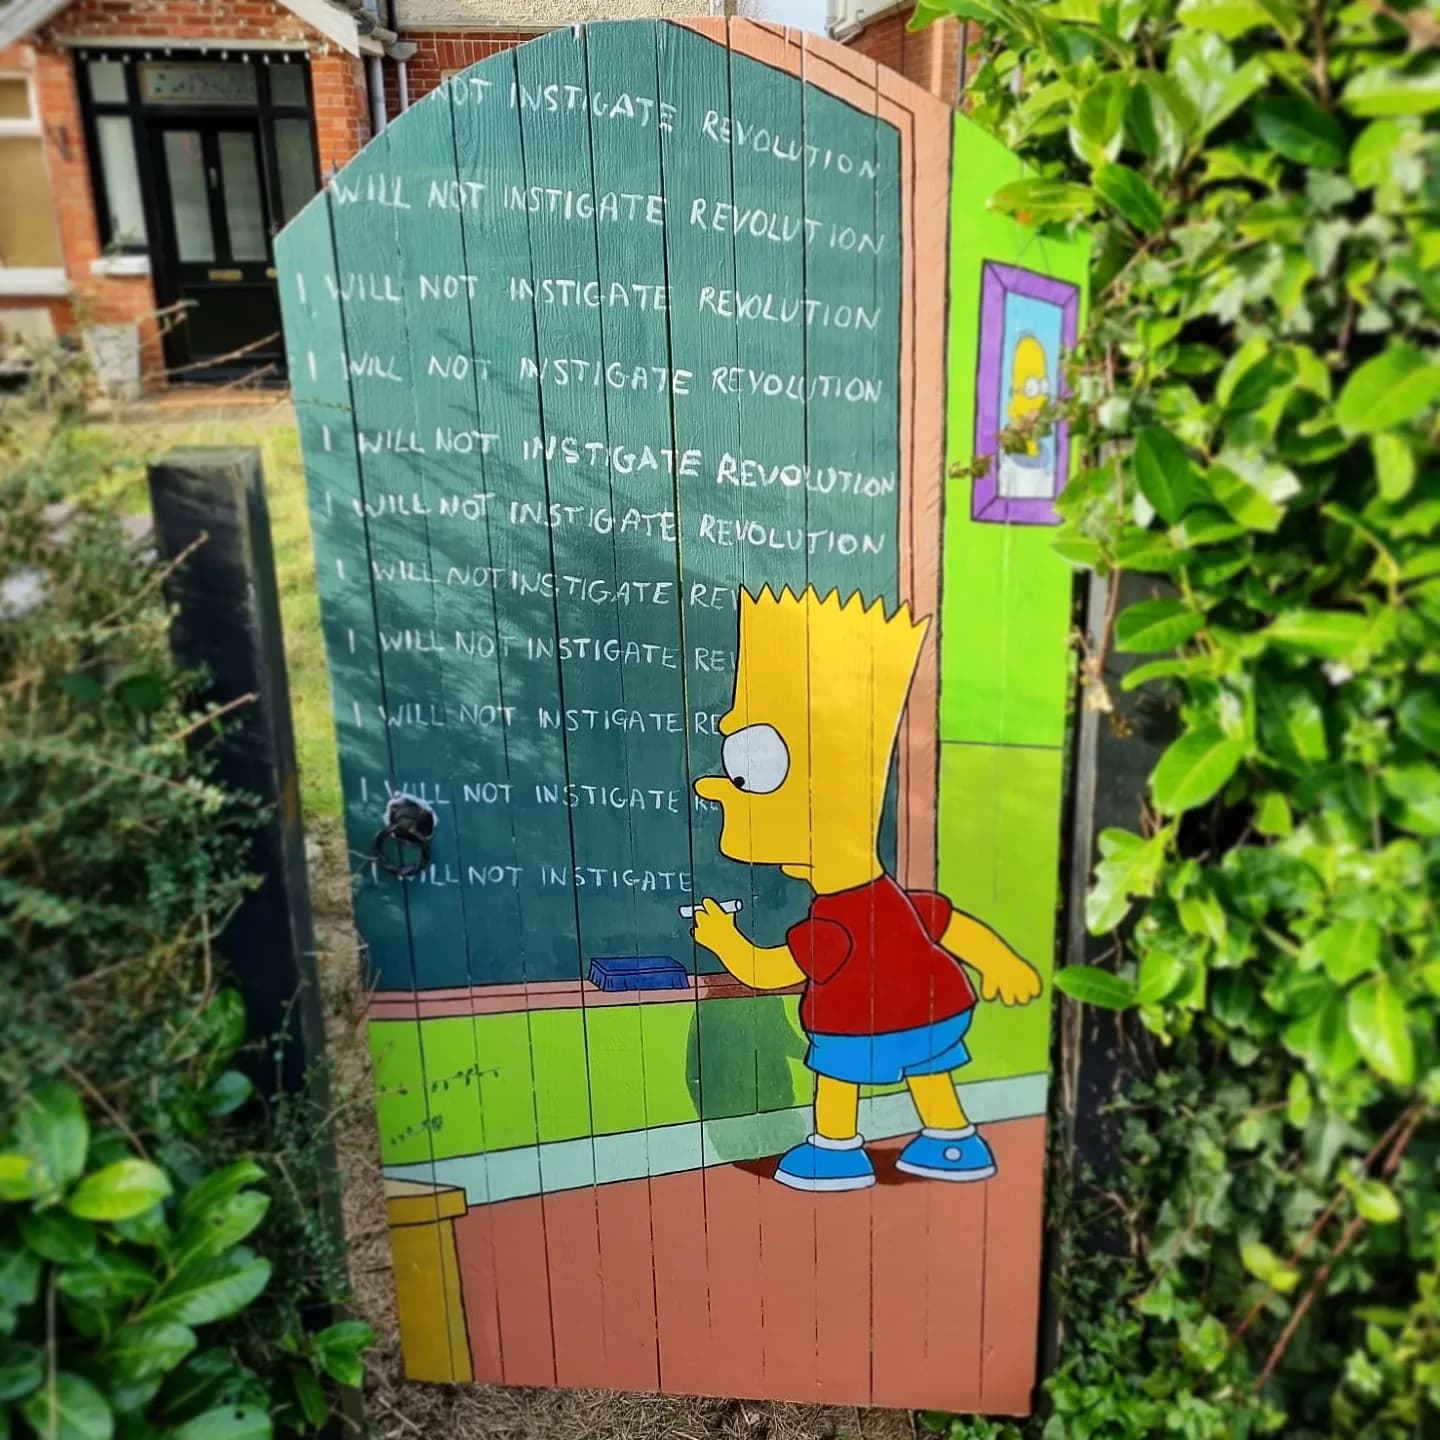 NOT INSTIGATE REVOLUTION
WILL NOT INSTIGATE REVOLUTION
I WILL NOT INSTIGATE REVOLUTION
I WILL NOT INSTIGATE REVOLUTION
I WILL NOT INSTIGATE REVOLUTION
I WILL NOT INSTIGATE REVOLUTION
I WILL NOT INSTIGATE REV
I WILL NOT INSTIGATE REV
I WILL NOT INSTIGATE RE
I WILL NOT INSTIGATE RE
I WILL NOT INSTIGATE